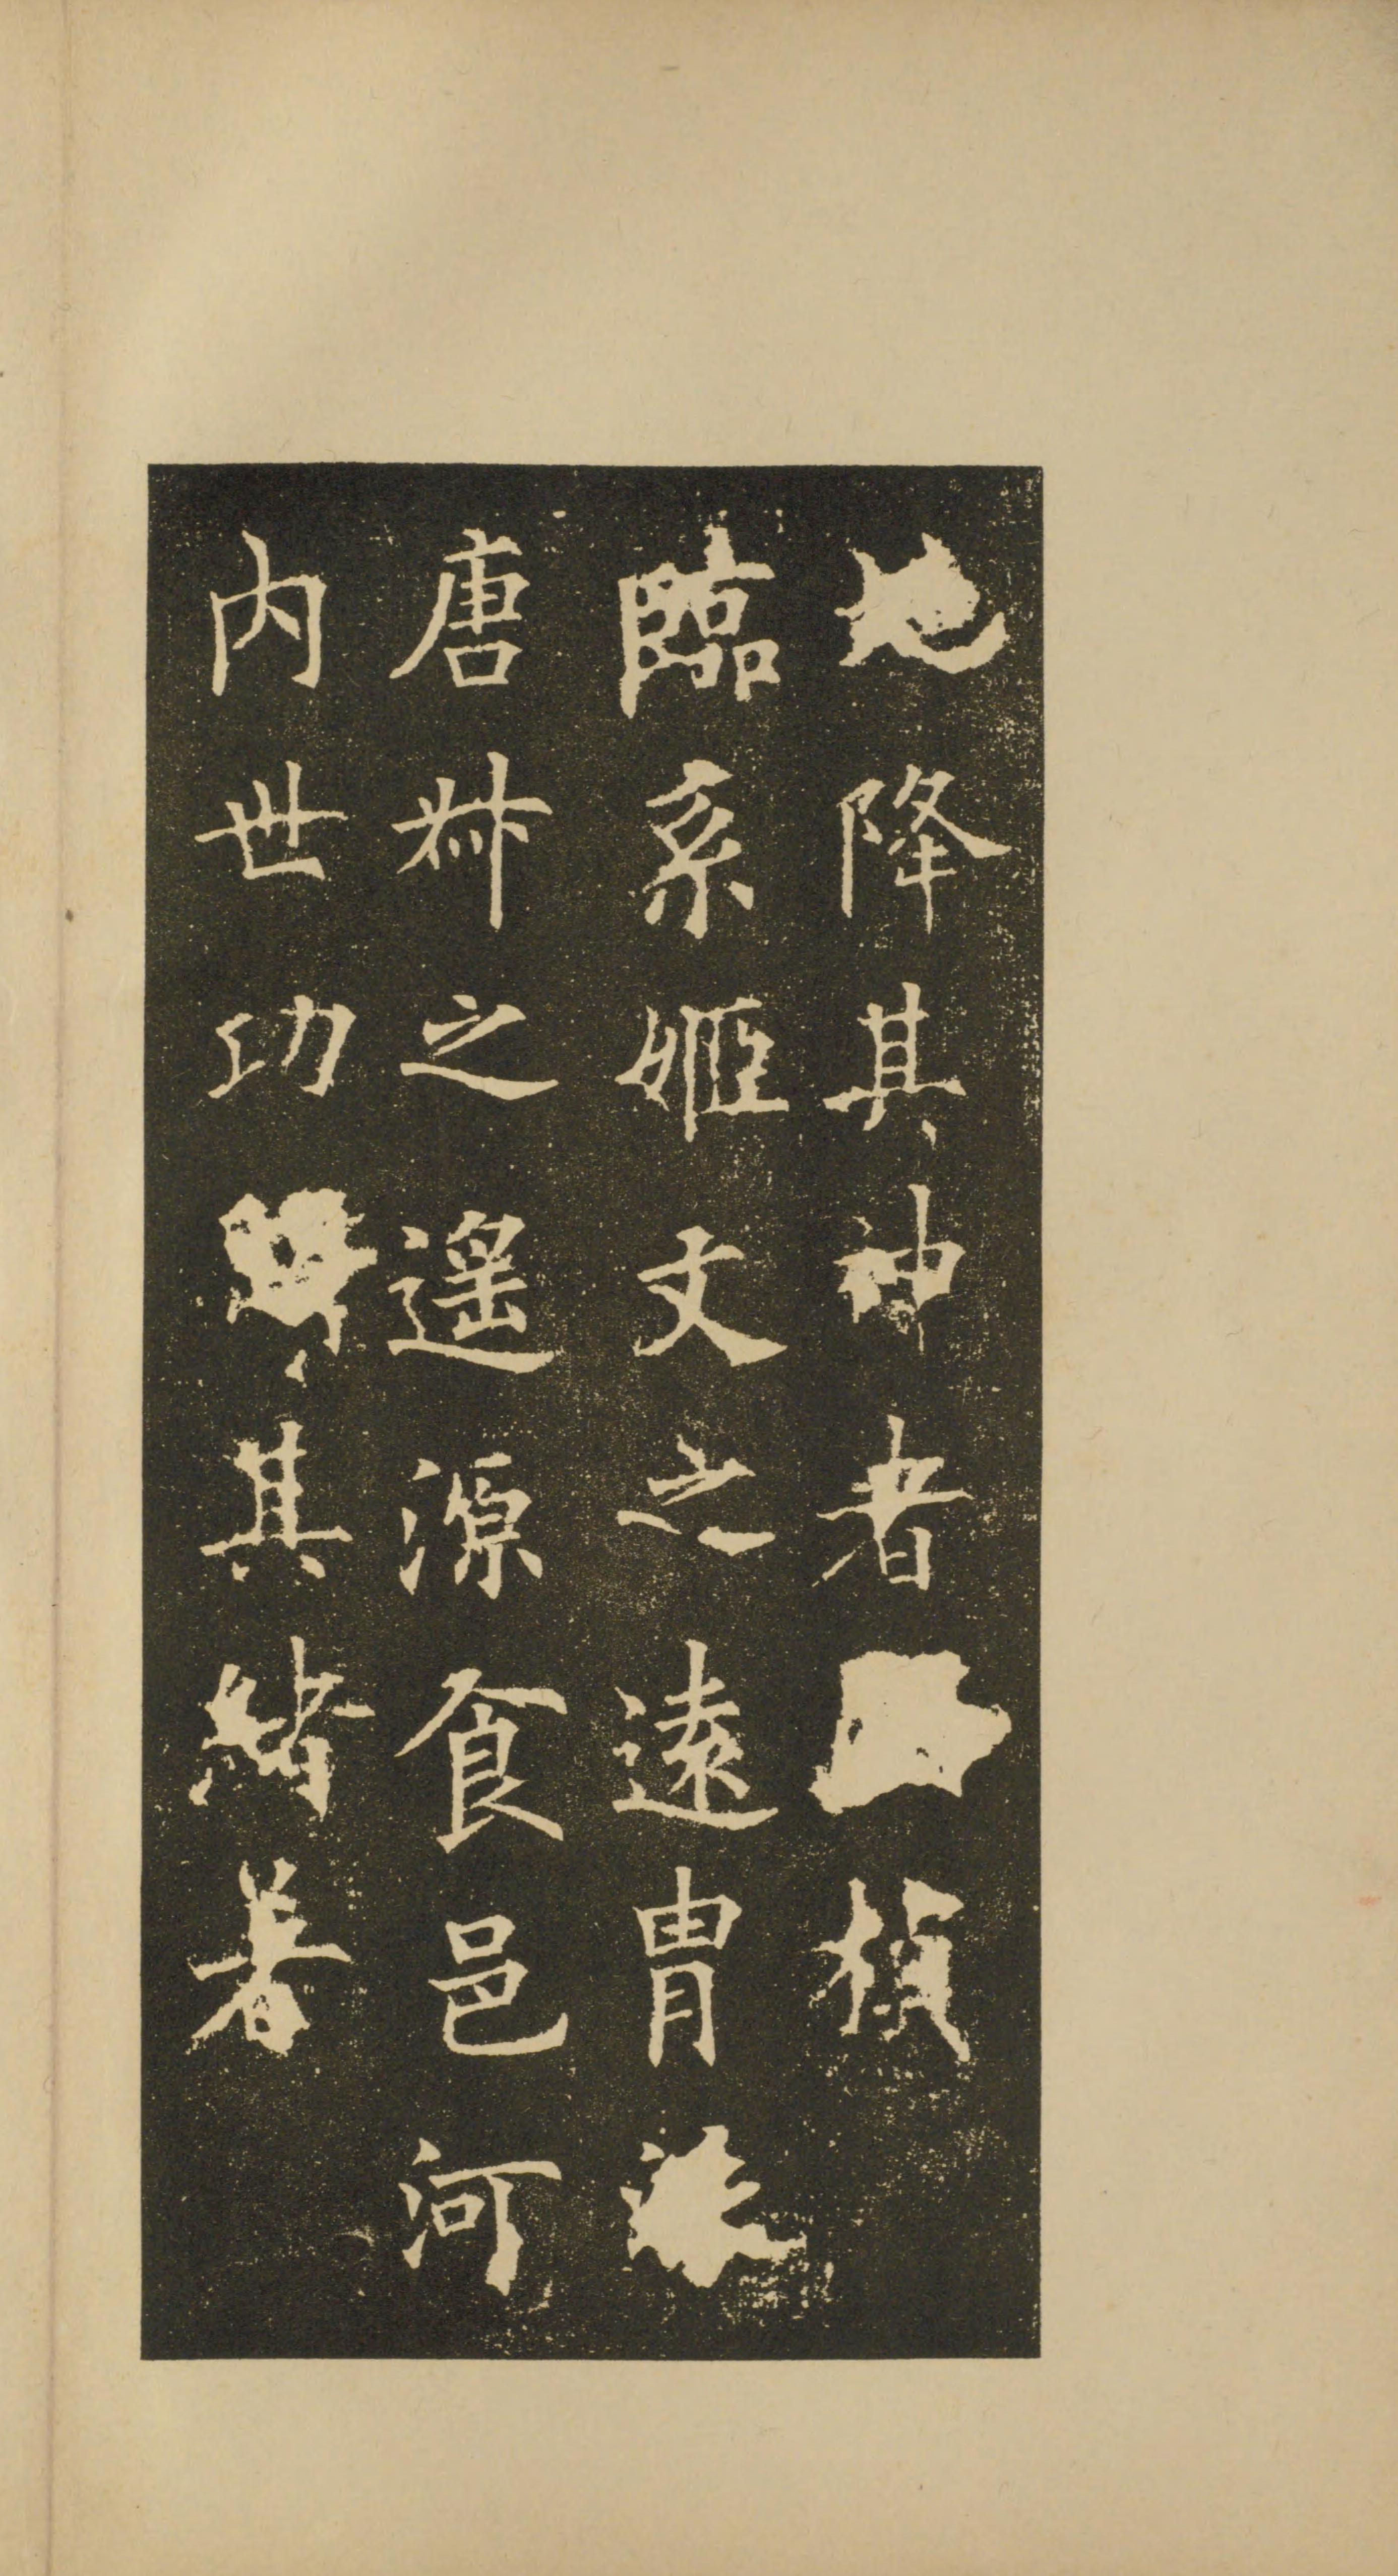 地降其神者禎
臨系姬文之遠胄
唐叔之遥源食邑河
内世功其緒著